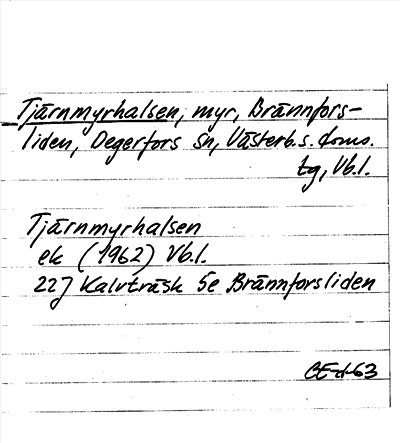 Tjärnmyrhalsen, myr, Brännfors-
liden, Degerfors sn, Västerb.s. doms.
tg, Vb.l.
Tjärnmyrhalsen
ek (1962) Vb.l.
22J Kalvträsk 5e Brännforsliden
63